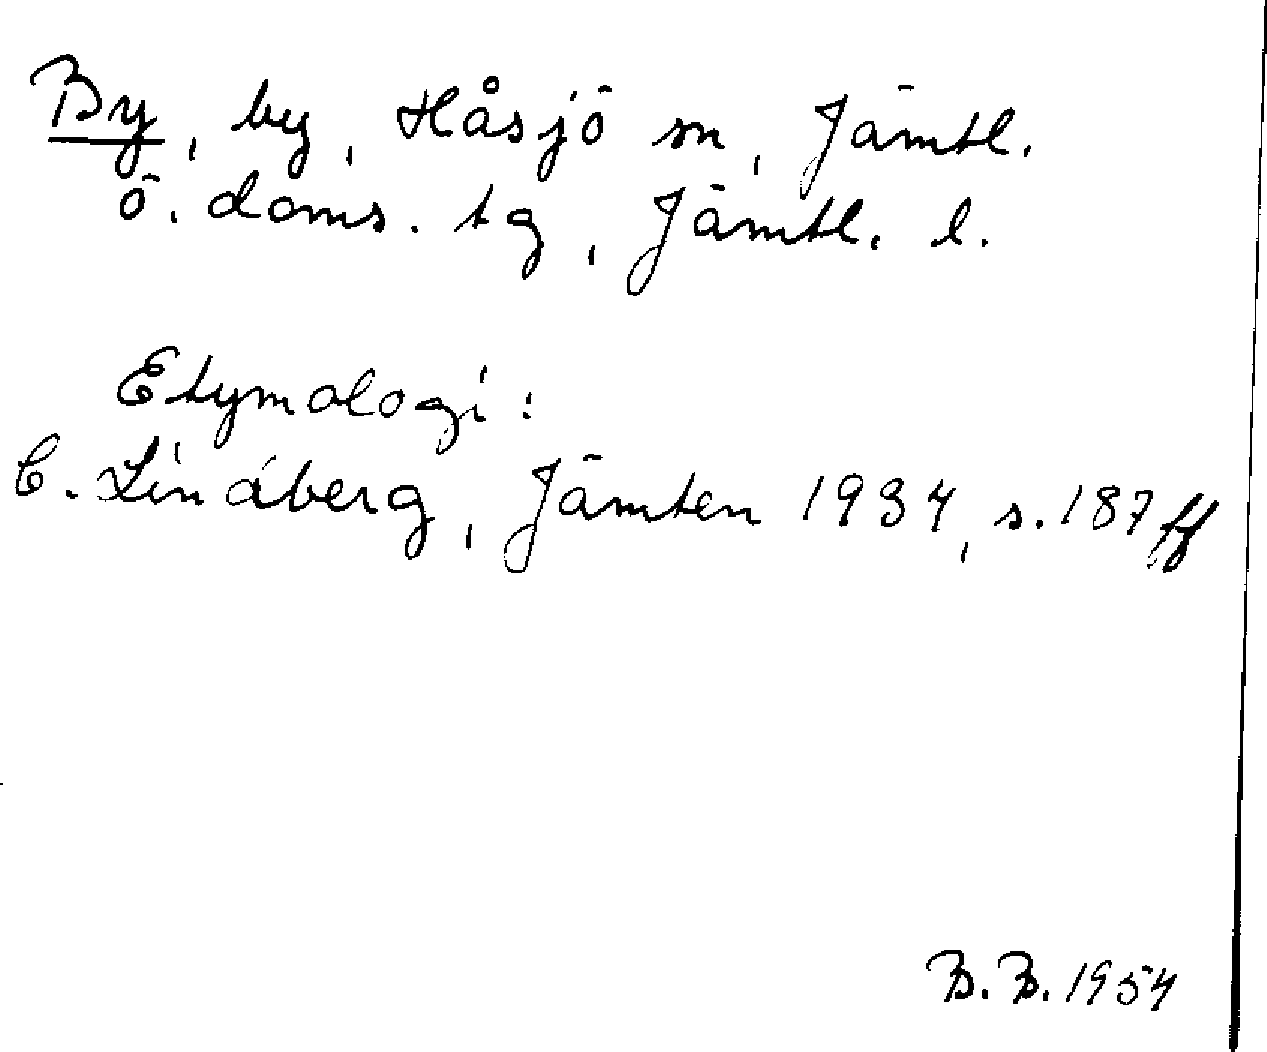 By, by, Håsjö sn, Jämtl.
ö. doms. tg, Jämtl. l.
Etymologi:
C. Lindberg, Jämten 1934, s. 187 ff
B. B. 1954